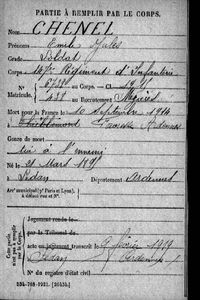 PARTIE À REMPLIR PAR LE CORPS.
Nom CHENEL
Prénoms Emile Jules
Grade Soldat
147e Régiment d'Infanterie
N° au Corps. — Cl.
Matricule. au Recrutement Mézières
Mort pour la France le 10 Septembre 1914
à
Genre de mort
tué à l'ennemi
Né le 21 Mars
à Sedan Département Ardennes
Arrt municipal (pr Paris et Lyon),
à défaut rue et N°.
Cette partie n'est pas à remplir par le Corps.
Jugement rendu le
par le Tribunal de
acte ou jugement transcrit le 9 février 1919
à Sedan Ardennes
N° du registre d'état civil
534-708-1921. [26434.]